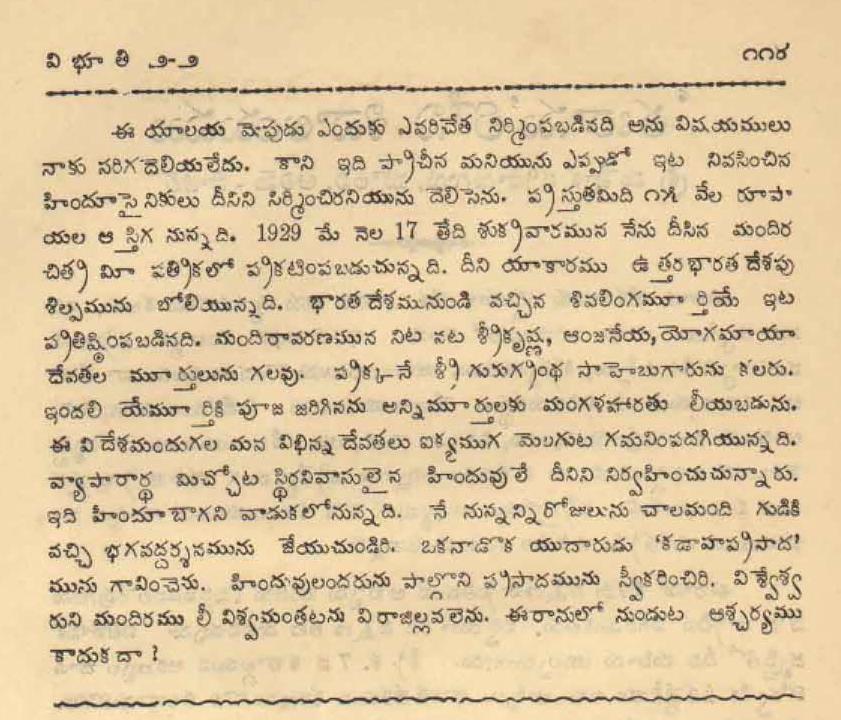 విభూతి ౨-౨ ౧౧౪
ఈ యాలయ మెపుడు ఎందుకు ఎవరిచేత నిర్మింపబడినది అను విషయములు
నాకు సరిగ దెలియలేదు. కాని ఇది ప్రాచీన మనియును ఎప్పుడో ఇట నివసించిన
హిందూసైనికులు దీసిని సిర్మించిరనియును దెలిసెను. ప్రస్తుతమిది ౧౫ వేల రూపా
యల ఆస్తిగ నున్నది. 1929 మే నెల 17 తేది శుక్రవారమున నేను దీసిన మందిర
చిత్ర మీ పత్రికలో ప్రకటింపబడుచున్నది. దీని యాకారము ఉత్తరభారత దేశపు
శిల్పమును బోలియున్నది. భారత దేశమునుండి వచ్చిన శివలింగమూర్తియే ఇట
ప్రతిష్ఠింపబడినది. మందిరావరణమున నిట నట శ్రీకృష్ణ, ఆంజనేయ, యోగమాయా
దేవతల మూర్తులును గలవు. ప్రక్కనే శ్రీ గురుగ్రంథ సాహెబుగారును కలరు.
ఇందలి యేమూర్తికి పూజ జరిగినను అన్నిమూర్తులకు మంగళహారతు లీయబడును.
ఈ విదేశమందుగల మన విభిన్న దేవతలు ఐక్యముగ మెలగుట గమనింపదగియున్నది.
వ్యాపారార్థ మిచ్చోట స్థిరనివాసులైన హిందువులే దీనిని నిర్వహించుచున్నారు.
ఇది హిందూ బాగని వాడుకలోనున్నది. నే నున్నన్ని రోజులును చాలమంది గుడికి
వచ్చి భగవద్దర్శనమును జేయుచుండిరి. ఒకనాడొక యుదారుడు ‘కడాహప్రసాద’
మును గావించెను. హిందువులందరును పాల్గొని ప్రసాదమును స్వీకరించిరి. విశ్వేశ్వ
రుని మందిరము లీ విశ్వమంతటను విరాజిల్లవలెను. ఈరానులో నుండుట ఆశ్చర్యము
కాదుకదా?